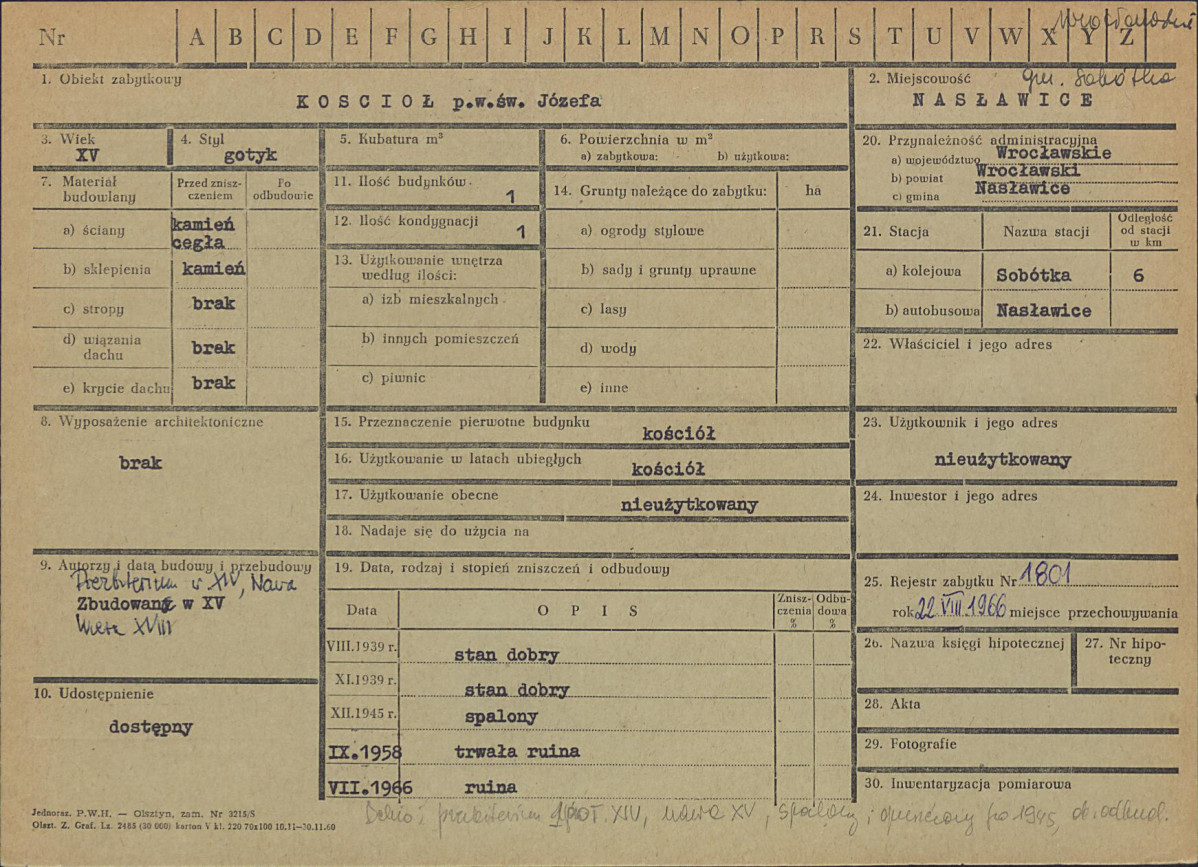 Nr A B C D E F G H I J K L M N O P R S T U V W X Y Z
1. Obiekt zabytkowy
KOSCIOŁ p.w.św. Józefa
2. Miejscowość gm. Sobótka
NASŁAWICE
3. Wiek
XV
4. Styl
gotyk
5. Kubatura m³
6. Powierzchnia w m²
a) zabytkowa: b) użytkowa:
20. Przynależność administracyjna
a) województwo Wrocławskie
b) powiat Wrocławski
c) gmina Nasławice
7. Materiał budowlany
Przed zniszczeniem
Po odbudowie
a) ściany kamień
cegła
b) sklepienia kamień
c) stropy brak
d) wiązania dachu brak
e) krycie dachu brak
11. Ilość budynków 1
12. Ilość kondygnacji 1
13. Użytkowanie wnętrza
według ilości:
a) izb mieszkalnych
b) innych pomieszczeń
c) piwnic
14. Grunty należące do zabytku: ha
a) ogrody stylowe
b) sady i grunty uprawne
c) lasy
d) wody
e) inne
21. Stacja Nazwa stacji Odległość od stacji w km
a) kolejowa Sobótka 6
b) autobusowa Nasławice
22. Właściciel i jego adres
8. Wyposażenie architektoniczne
brak
15. Przeznaczenie pierwotne budynku
kościół
16. Użytkowanie w latach ubiegłych
kościół
17. Użytkowanie obecne
nieużytkowany
18. Nadaje się do użycia na
23. Użytkownik i jego adres
nieużytkowany
24. Inwestor i jego adres
9. Autorzy i data budowy i przebudowy
Prezbiterium w XIV, Nawa
Zbudowana w XV
Wieża XVIII
10. Udostępnienie
dostępny
19. Data, rodzaj i stopień zniszczeń i odbudowy
Data OPIS Zniszczenia % Odbudowa %
VIII.1939 r. stan dobry
XI.1939 r. stan dobry
XII.1945 r. spalony
IX.1958 trwała ruina
VII.1966 ruina
25. Rejestr zabytku Nr 1801
rok 22 VIII 1966 miejsce przechowywania
26. Nazwa księgi hipotecznej
27. Nr hipoteczny
28. Akta
29. Fotografie
30. Inwentaryzacja pomiarowa
Jednoraz. P.W.H. — Olsztyn, zam. Nr 3215/S
Olszt. Z. Graf. Lz. 2485 (30 000) karton V kl. 220 70x100 10.11—30.11.60
Dehio: prezbiterium poł. XIV, nawa XV, spalony i opuszczony po 1945, ob. odbud.